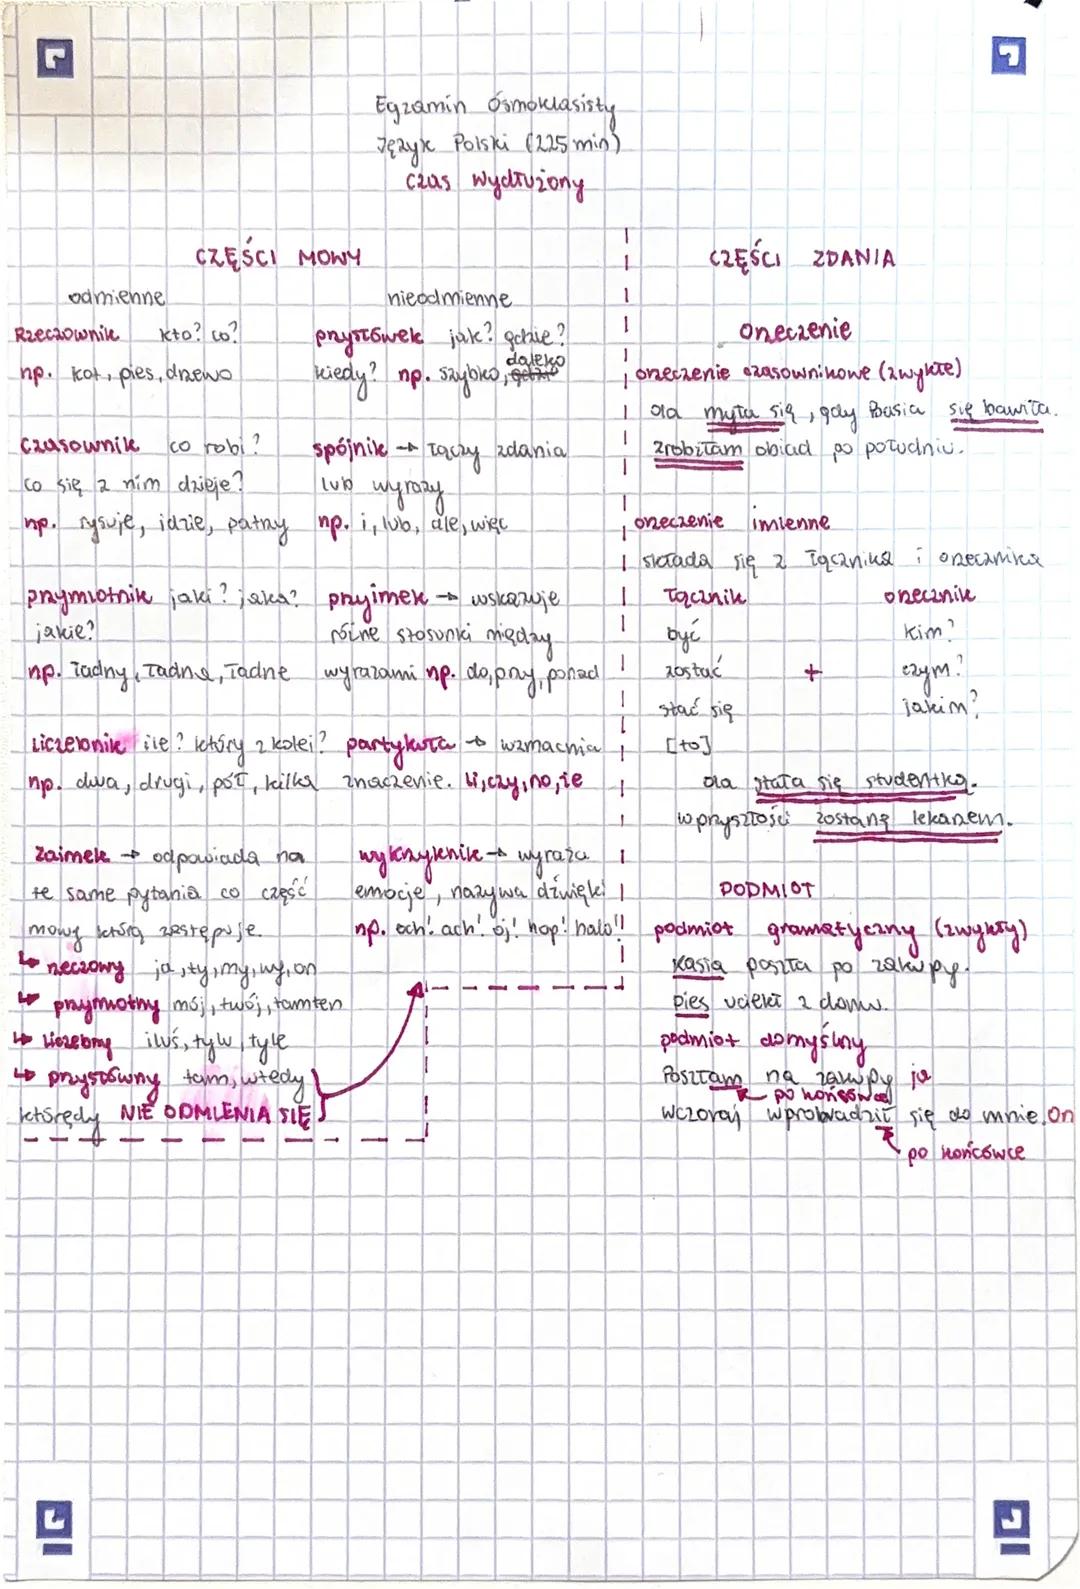 Egzamin Ósmoklasisty
Język Polski (225 min)
czas wydłużony
CZĘŚCI MOWY
odmienne
Rzeczownik kto? co?
np. kot, pies, drzewo
czasownik co robi?
co się z nim dzieje?
np. rysuje, idzie, patrzy
przymiotnik jaki? jaka?
jakie?
np. ładny, ładna, ładne
Liczebnik ile? który z kolei?
np. dwa, drugi, pół, kilka
Zaimek → odpowiada na
te same pytania co część
mowy którą zastępuje.
↳ rzeczowny ja, ty, my, wy, on
↳ przymiotny mój, twój, tamten
↳ liczebny iluś, tylu, tyle
↳ przysłówny tam, wtedy
którędy NIE ODMIENIA SIĘ
nieodmienne
przysłówek jak? gdzie?
kiedy? np. szybko, daleko
spójnik → łączy zdania
lub wyrazy
np. i, lub, ale, więc
przyimek → wskazuje
różne stosunki między
wyrazami np. do, przy, ponad
partykuła → wzmacnia
znaczenie. li, czy, no, że
wykrzyknik → wyraża
emocje, nazywa dźwięki
np. och! ach! oj! hop! halo!!
CZĘŚCI ZDANIA
orzeczenie
orzeczenie czasownikowe (zwykłe)
Ola myła się, gdy Basia się bawiła.
Zrobiłam obiad po południu.
orzeczenie imienne
składa się z łącznika i orzecznika
łącznik orzecznik
być kim?
zostać + czym?
stać się jakim?
[to]
Ola stała się studentką.
W przyszłości zostanę lekarzem.
PODMIOT
podmiot gramatyczny (zwykły)
Kasia poszła po zakupy.
Pies uciekł z domu.
podmiot domyślny
Poszłam na zakupy ja
po końcówce
Wczoraj wprowadził się do mnie. On
po końcówce